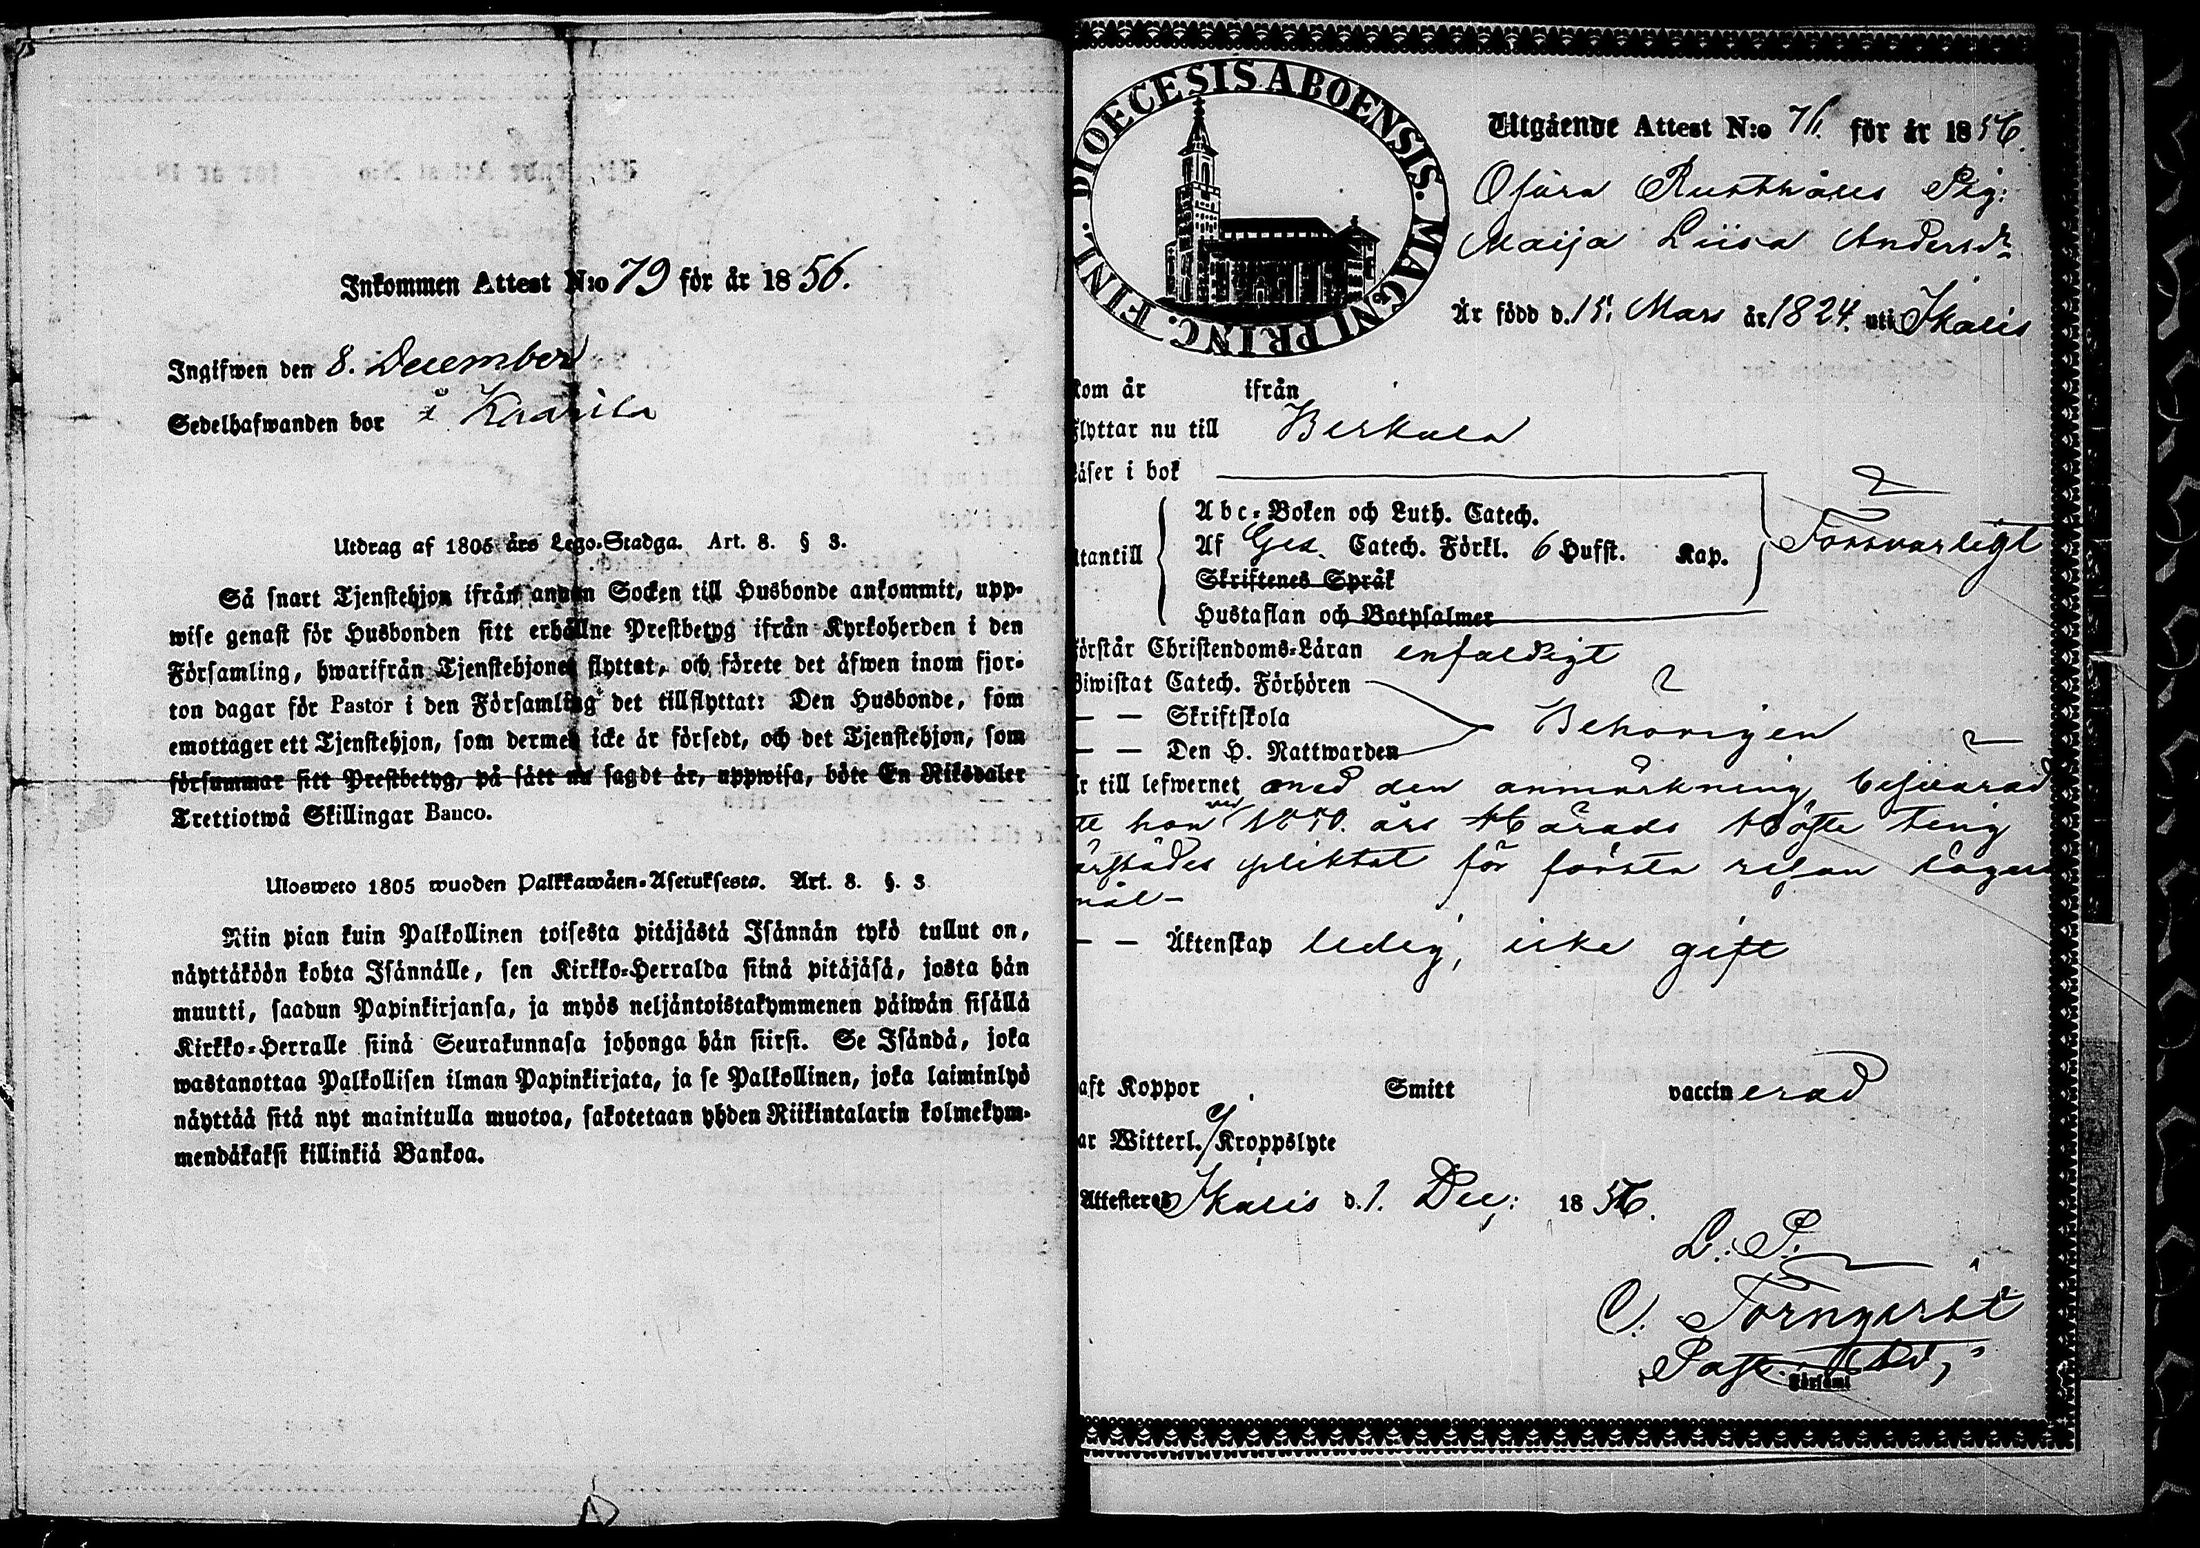 Inkommen Attest N:o 79 för år 1856.
Ingifwen den 8. December
Sedelhafwanden bor i Kaarila
Utdrag af 1805 års Lego-Stadga. Art. 8. § 3.
Så snart Tjenstehjon ifrån annan Socken till Husbonde ankommit, upp-
wise genast för Husbonden sitt erhållne Prestbetyg ifrån Kyrkoherden i den
Församling, hwarifrån Tjenstehjonet flyttat, och förete det äfwen inom fjor-
ton dagar för Pastor i den Församling det tillflyttat: Den Husbonde, som
emottager ett Tjenstehjon, som dermed icke är försedt, och det Tjenstehjon, som
försummar sitt Prestbetyg, på sätt nu sagdt är, uppwisa, böte En Riksdaler
Trettiotwå Skillingar Banco.
Ulosweto 1805 wuoden Palkkawäen-Asetuksesta. Art. 8. §. 3
Niin pian kuin Palkollinen toisesta pitäjästä Isännän tykö tullut on,
näyttäköön kohta Isännälle, sen Kirkko-Herralda siinä pitäjäsä, josta hän
muutti, saadun Papinkirjansa, ja myös neljäntoistakymmenen päiwän sisällä
Kirkko-Herralle siinä Seurakunnasa johonga hän siirsi. Se Isändä, joka
wastanottaa Palkollisen ilman Papinkirjata, ja se Palkollinen, joka laiminlyö
näyttää sitä nyt mainitulla muotoa, sakotetaan yhden Riikintalarin kolmekym-
mendäkaksi killinkiä Bankoa.
DIOECESIS ABOENSIS. MAGNI PRINC. FINL.
Utgående Attest N:o 76. för år 1856.
Ofära Rusthålls Pig:
Maija Liisa Andersdr
Är född d. 15. Mars år 1824. uti Ikalis
kom år ifrån
flyttar nu till Birkala
läser i bok
Abc-Boken och Luth. Catech.
utantill Af Ges. Catech. Förkl. 6 Hufst. Kap. Försvarligt
Skriftenes Språk
Hustaflan och Botpsalmer
förstår Christendoms-Läran enfaldigt
Biwistat Catech. Förhören
— — Skriftskola Behörigen
— — Den H. Nattwarden
är till lefwernet med den anmärkning besvärad
hon wid 1850. års Härads Höste ting
pliktat för första resan läger
mål—
— — Äktenskap ledig, icke gift
haft Koppor Smitt vaccinerad
har Witterl. Kroppslyte
Attesteras Ikalis d. 1. Dec: 1856.
L. P.
C. Törnqvist
Past.
Församl